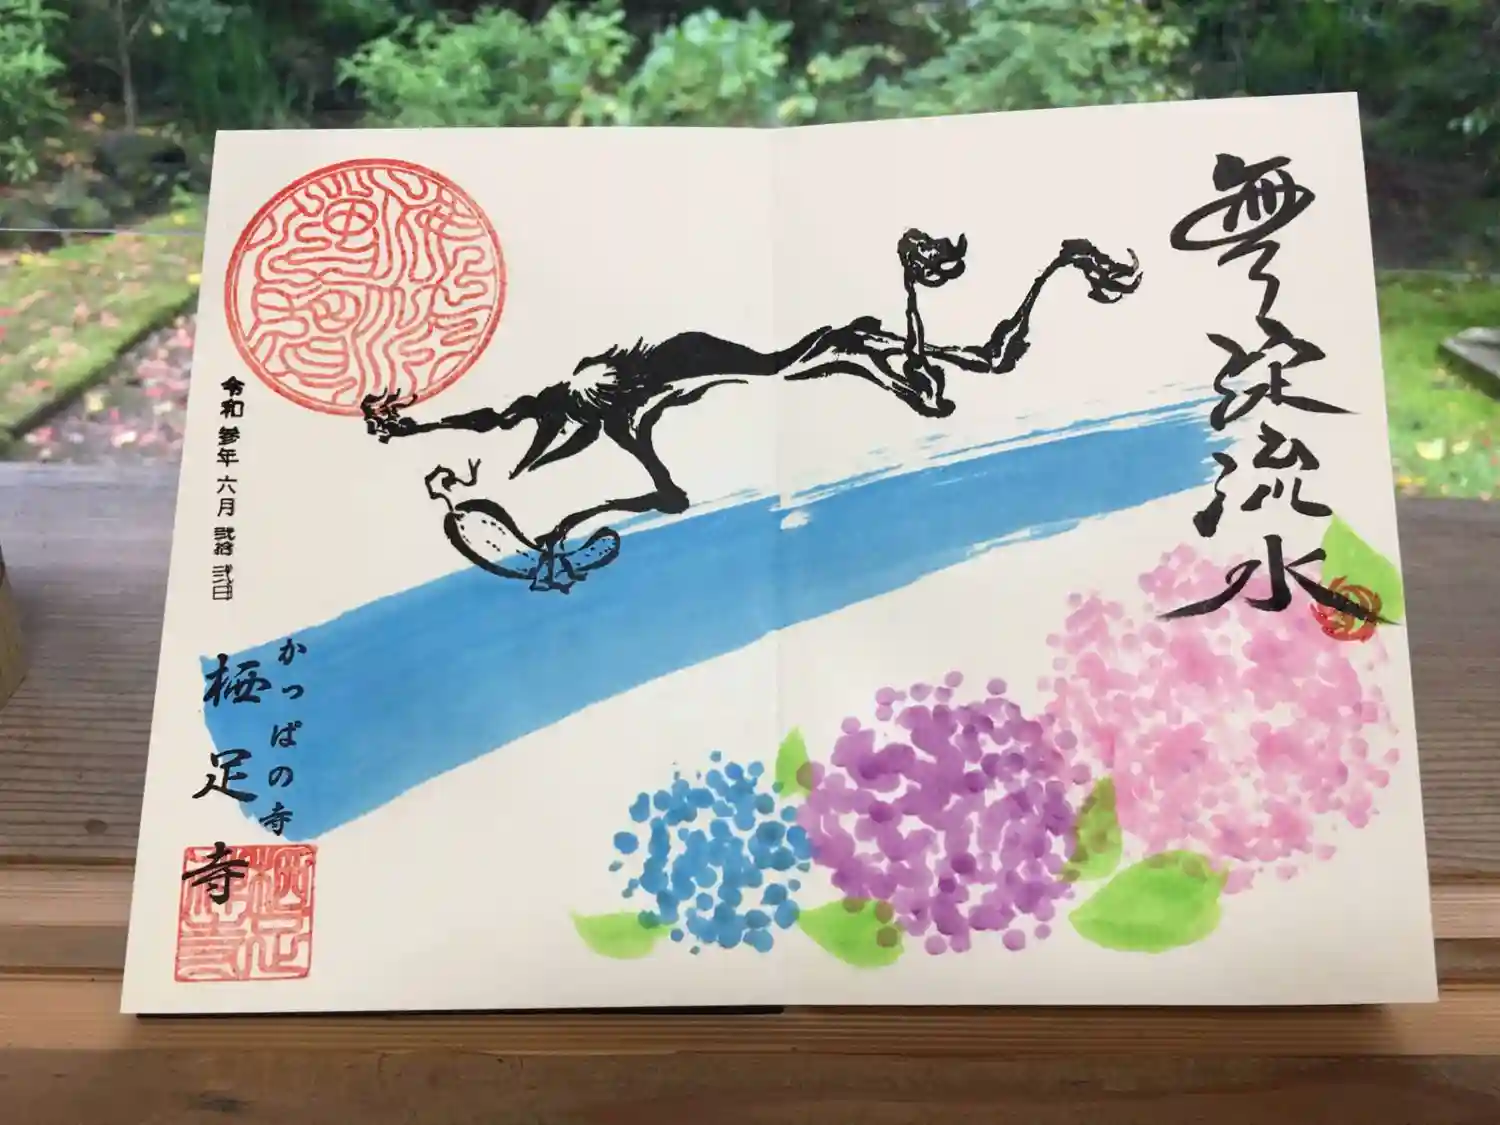 無心流水
令和参年六月弐拾弐日
かっぱの寺
栖足寺